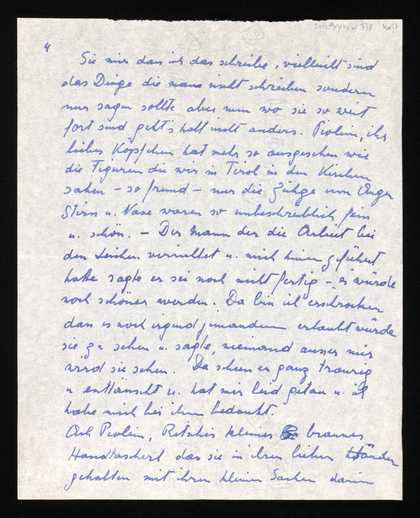 4
Sie mir dass ich das schreibe, vielleicht sind
das Dinge die man nicht schreiben sondern
nur sagen sollte aber nun wo sie so weit
fort sind geht's halt nicht anders. Piolin, ihr
liebes Köpfchen hat mehr so ausgesehen wie
die Figuren die wir in Tirol in den Kirchen
sahen – so fremd – nur die Züge von Auge
Stirn u. Nase waren so unbeschreiblich fein
u. schön. – Der Mann der die Arbeit bei
den Leichen verrichtet u. mich hinein geführt
hatte sagte er sei noch nicht fertig – es würde
noch schöner werden. Da bin ich erschrocken
dass es noch irgend jemandem erlaubt würde
sie zu sehen u. sagte, niemand ausser mir
wird sie sehen. Da schien er ganz traurig
u. enttäuscht u. hat mir leid getan u. ich
habe mich bei ihm bedankt.
Ach Piolin, kleines braunes
Handtascherl das sie in ihren lieben Händen
gehalten mit ihren kleinen Sachen darin